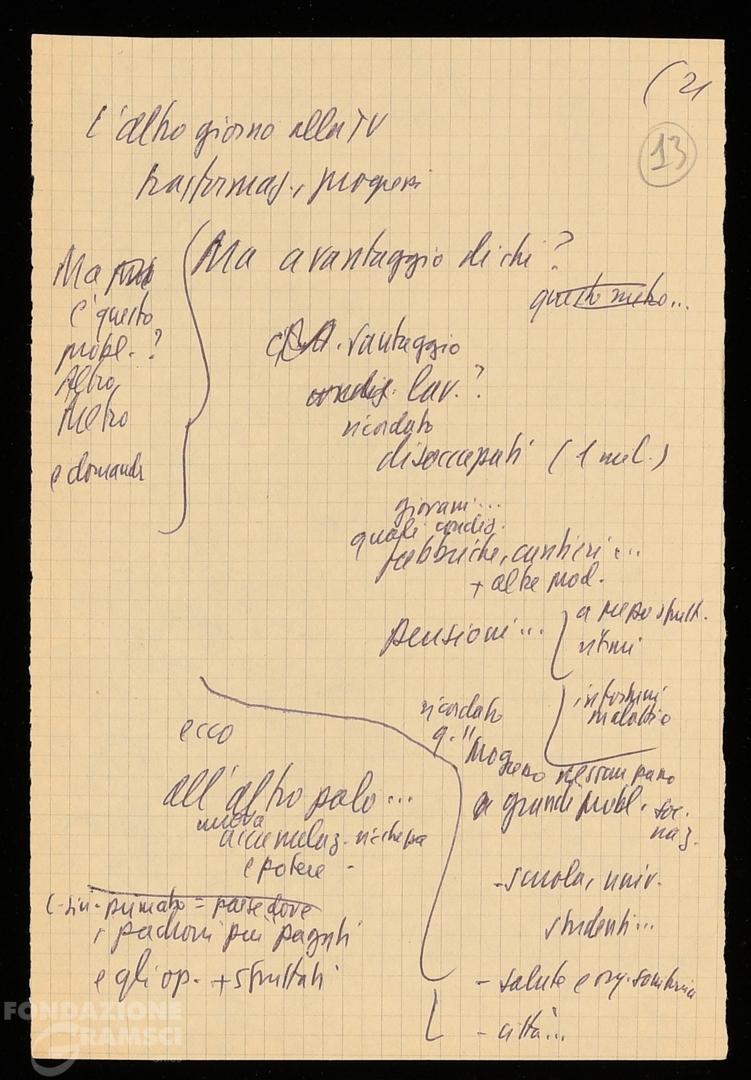 (21
13
L'altro giorno alla TV
trasformaz., progressi
Ma
c'questo
probl. ?
Altro
Metro
e domande
Ma a vantaggio di chi?
questo metro...
vantaggio
condiz. lav. ?
ricordato
disoccupati (1 mil.)
giovani...
quali condiz.
fabbriche, cantieri...
+ altre prod.
pensioni...
ritmi
infortuni
malattie
ricordato
q."
nessun passo
a grandi probl. soc.
naz.
- scuola, univ.
studenti...
- salute e org. sanitaria
- città...
ecco
all'altro polo...
nuova
accumulaz. ricchezza
e potere -
primato = paese dove
i padroni più pagati
e gli op. + sfruttati
FONDAZIONE
GRAMSCI